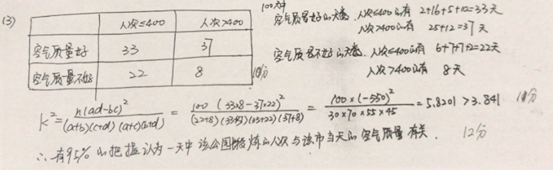 (3)
人次≤400 人次>400
空气质量好 33 37
空气质量不好 22 8
10分
100天中
空气质量好的天数 人次≤400的有 2+16+5+10=33天
人次>400的有 25+12=37天
空气质量不好的天数 人次≤400的有 6+7+7+2=22天
人次>400的有 8天
K²= n(ad-bc)² / (a+b)(c+d)(a+c)(b+d) = 100(33×8-37×22)² / (22+8)(33+37)(33+22)(37+8) = 100×(-550)² / 30×70×55×45 = 5.8201 > 3.841 11分
∴有95%的把握认为一天中该公园锻炼的人次与该市当天的空气质量有关. 12分